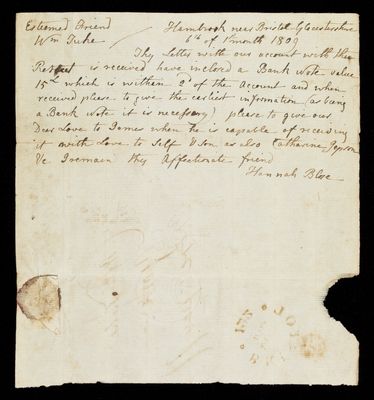 Esteemed Friend Hambrook near Bristol Glocestershire
Wm Tuke 6th of 1st month 1809
Thy Letter with our account with the
Retreat is received have inclosed a Bank Note value
15£ which is within of the Account and when
received please to give the earliest information (as being
a Bank Note it is necessary) please to give our
Dear Love to James when he is capable of receiving
it with Love to Self & Son as also Catharine Jepson
&c I remain thy Affectionate friend
Hannah